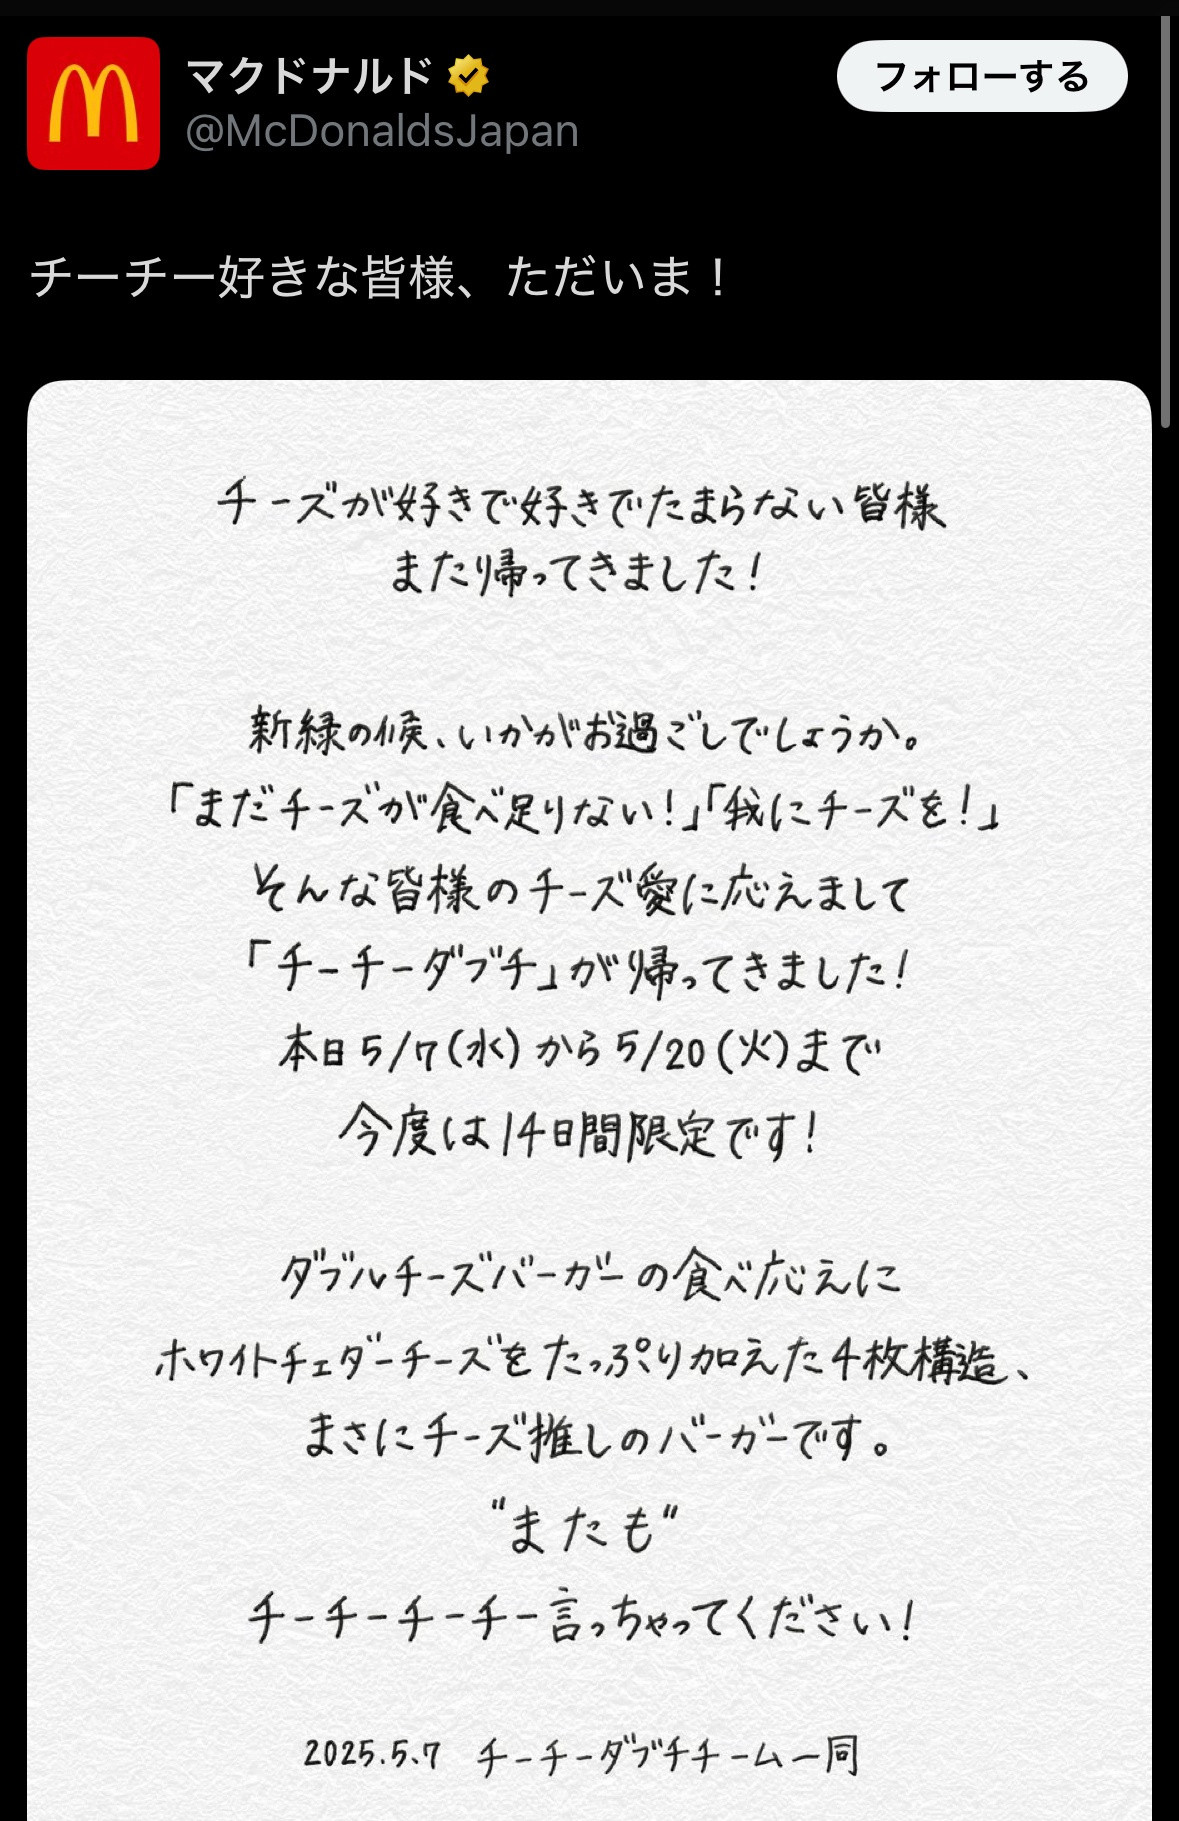 マクドナルド
フォローする
@McDonaldsJapan
チーチー好きな皆様、ただいま！
チーズが好きで好きでたまらない皆様
また帰ってきました！
新緑の候、いかがお過ごしでしょうか。
「まだチーズが食べ足りない！」「我にチーズを！」
そんな皆様のチーズ愛に応えまして
「チーチーダブチ」が帰ってきました！
本日5/7(水)から5/20(火)まで
今度は14日間限定です！
ダブルチーズバーガーの食べ応えに
ホワイトチェダーチーズをたっぷり加えた4枚構造、
まさにチーズ推しのバーガーです。
"またも"
チーチーチーチー言っちゃってください！
2025.5.7 チーチーダブチチーム一同